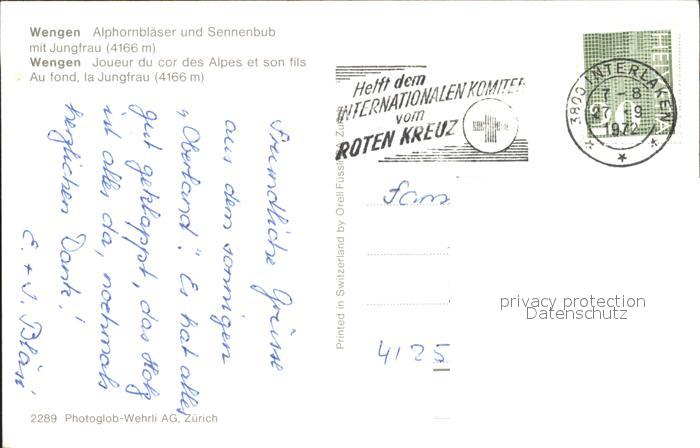 Wengen Alphornbläser und Sennenbub
mit Jungfrau (4166 m)
Wengen Joueur du cor des Alpes et son fils
Au fond, la Jungfrau (4166 m)
Freundliche Grüsse
aus dem sonnigen
"Oberland". Es hat alles
gut geklappt, das Holz
ist alles da, nochmals
herzlichen Dank!
E. + J. Bläsi
2289 Photoglob-Wehrli AG, Zürich
Printed in Switzerland by Orell Füssli
Helft dem
INTERNATIONALEN KOMITEE
vom
ROTEN KREUZ
HELVETIA
3800 INTERLAKEN
7-8
27.-9
1972
Fam
4125
privacy protection
Datenschutz